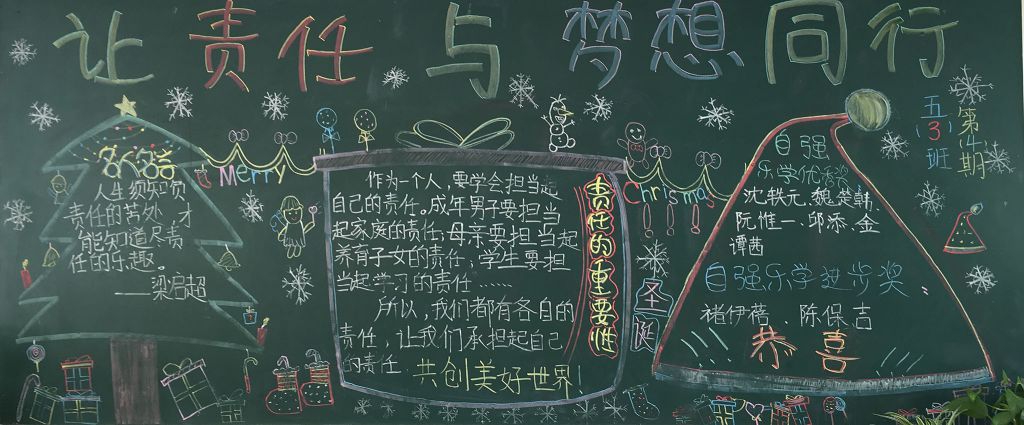 让责任与梦想同行
五(3)班
第4期
名人名言
人生须知负
责任的苦处,才
能知道尽责
任的乐趣。
——梁启超
Merry
Chrismas
圣诞
责任的重要性
作为一个人,要学会担当起
自己的责任。成年男子要担当
起家庭的责任;母亲要担当起
养育子女的责任;学生要担
当起学习的责任……
所以,我们都有各自的
责任,让我们承担起自己
的责任.
共创美好世界!
自强
乐学优秀奖
沈轶元.魏楚韩.
阮惟一.邱添.金
谭茜
自强乐学进步奖
褚伊蓓、陈保吉
恭喜